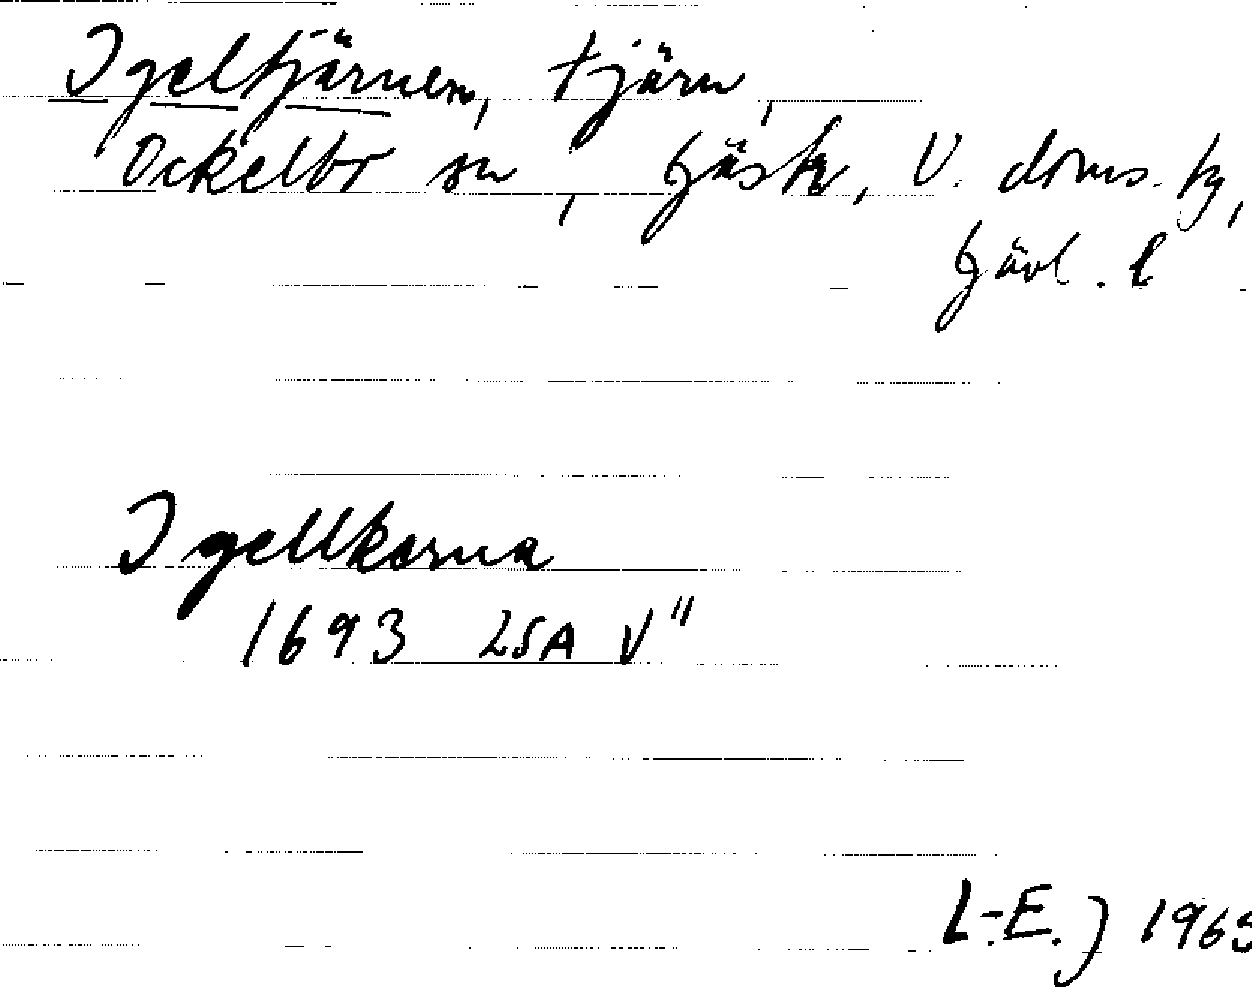 Igeltjärnen, tjärn,
Ockelbo sn, Gästr, V. doms. tg,
Gävl. l
Igellkarna
1693 LSA V"
L-E.J 1965